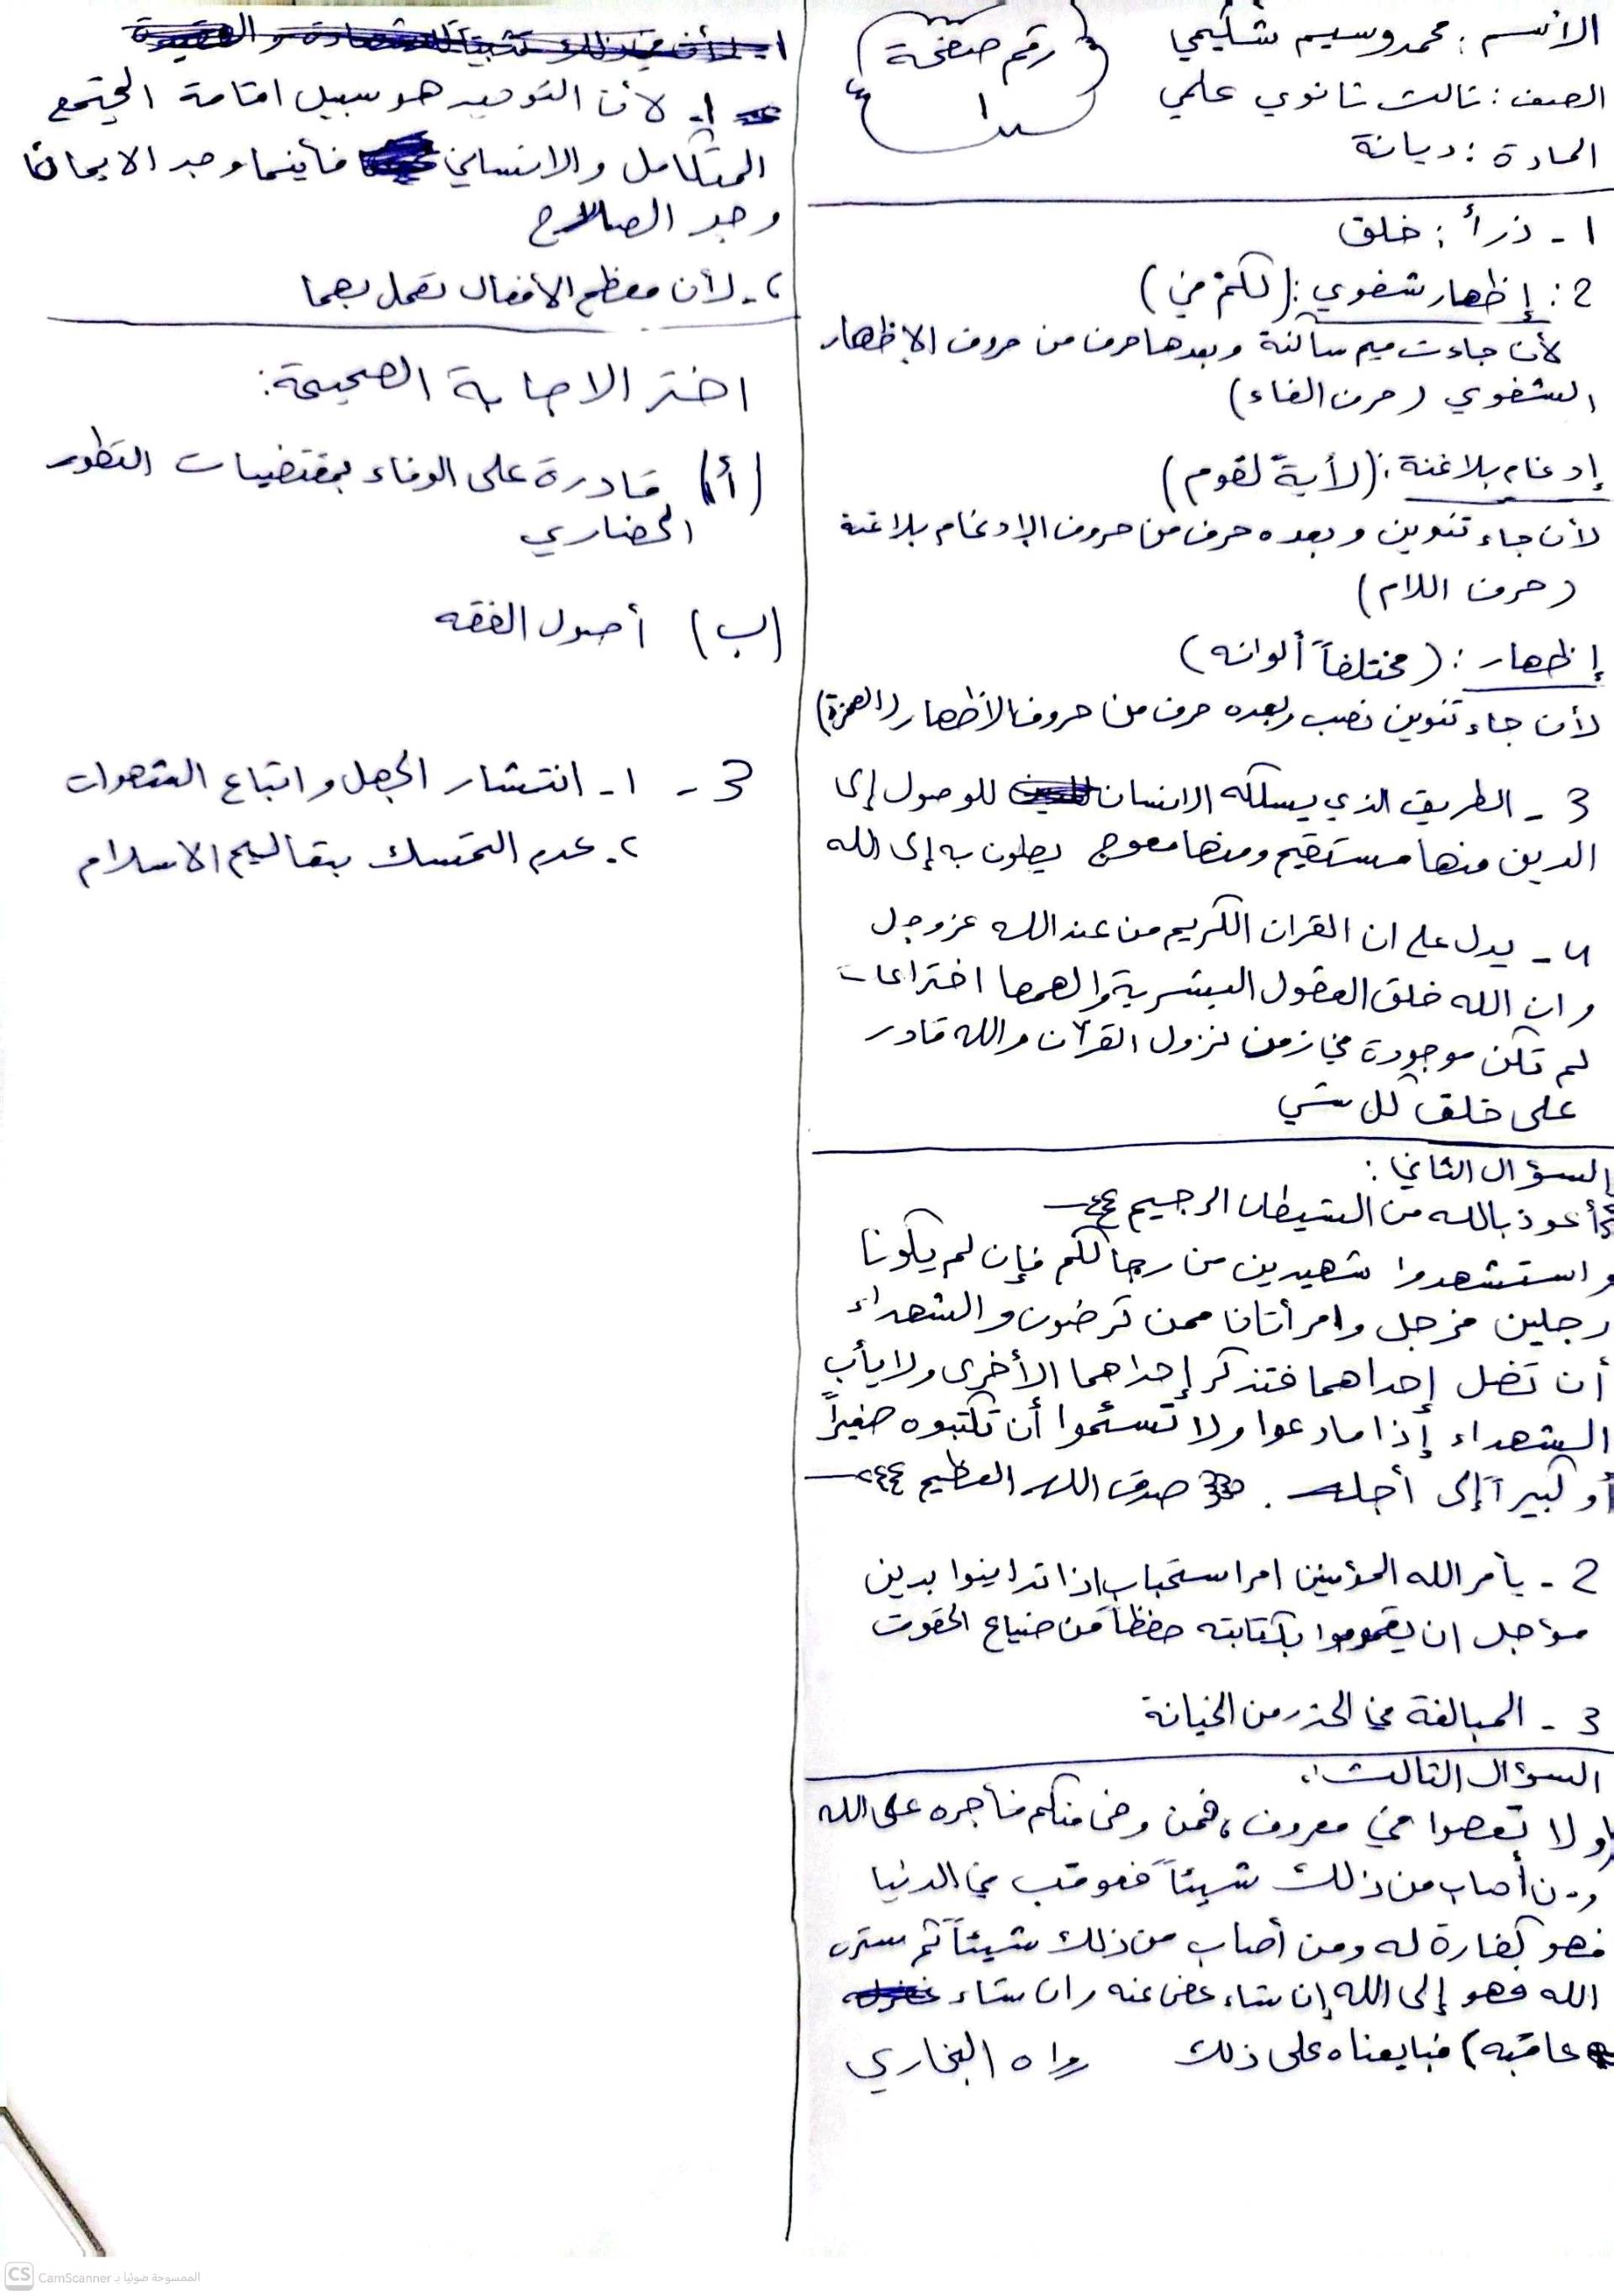 الاسم : محمد وسيم شليمي
الصف : ثالث ثانوي علمي
المادة : ديانة
رقم صفحة
1
1 - ذرأ : خلق
2 : إظهار شفوي : (لكم في)
لأن جاءت ميم ساكنة وبعدها حرف من حروف الإظهار
الشفوي (حرف الفاء)
إدغام بلاغنة : (لأيةً لقوم)
لأن جاء تنوين وبعده حرف من حروف الإدغام بلاغنة
(حرف اللام)
إظهار : (مختلفاً ألوانه)
لأن جاء تنوين نصب وبعده حرف من حروف الأظهار (الهمزة)
3 - الطريق الذي يسلكه الانسان للوصول إلى
الدين منها مستقيم ومنها معوج يصلون به إلى الله
4 - يدل على ان القران الكريم من عند الله عز وجل
وان الله خلق العقول البشرية والهمها اختراعات
لم تكن موجودة في زمن نزول القرآن والله قادر
على خلق كل شي
السؤال الثاني :
أعوذ بالله من الشيطان الرجيم
واستشهدوا شهيدين من رجالكم فإن لم يكونا
رجلين فرجل وامرأتان ممن ترضون والشهداء
أن تضل إحداهما فتذكر إحداهما الأخرى ولا يأب
الشهداء إذا مادعوا ولا تسئموا أن تكتبوه صغيراً
أو كبيراً إلى أجله . صدق الله العظيم
2 - يأمر الله المؤمنين امر استحباب اذا تداينوا بدين
مؤجل ان يقوموا بكتابته حفظاً من ضياع الحقوق
3 - المبالغة في الحذر من الخيانة
السؤال الثالث :
ولا تعصوا في معروف ، فمن وفى منكم فأجره على الله
ومن أصاب من ذلك شيئاً فعوقب في الدنيا
فهو كفارة له ومن أصاب من ذلك شيئاً ثم ستره
الله فهو إلى الله إن شاء عفى عنه وان شاء
عاقبه) فبايعناه على ذلك رواه البخاري
1- لأن التوحيد هو سبيل اقامة المجتمع
المتكامل والانساني فأينما وجد الايمان
وجد الصلاح
٢- لأن معظم الأفعال تعمل بهما
اختر الاجابة الصحيحة:
(أ) قادرة على الوفاء بمقتضيات التطور
الحضاري
(ب) أصول الفقه
3 - ١- انتشار الجهل واتباع الشهوات
٢- عدم التمسك بتعاليم الاسلام
CS CamScanner الممسوحة ضوئيا بـ